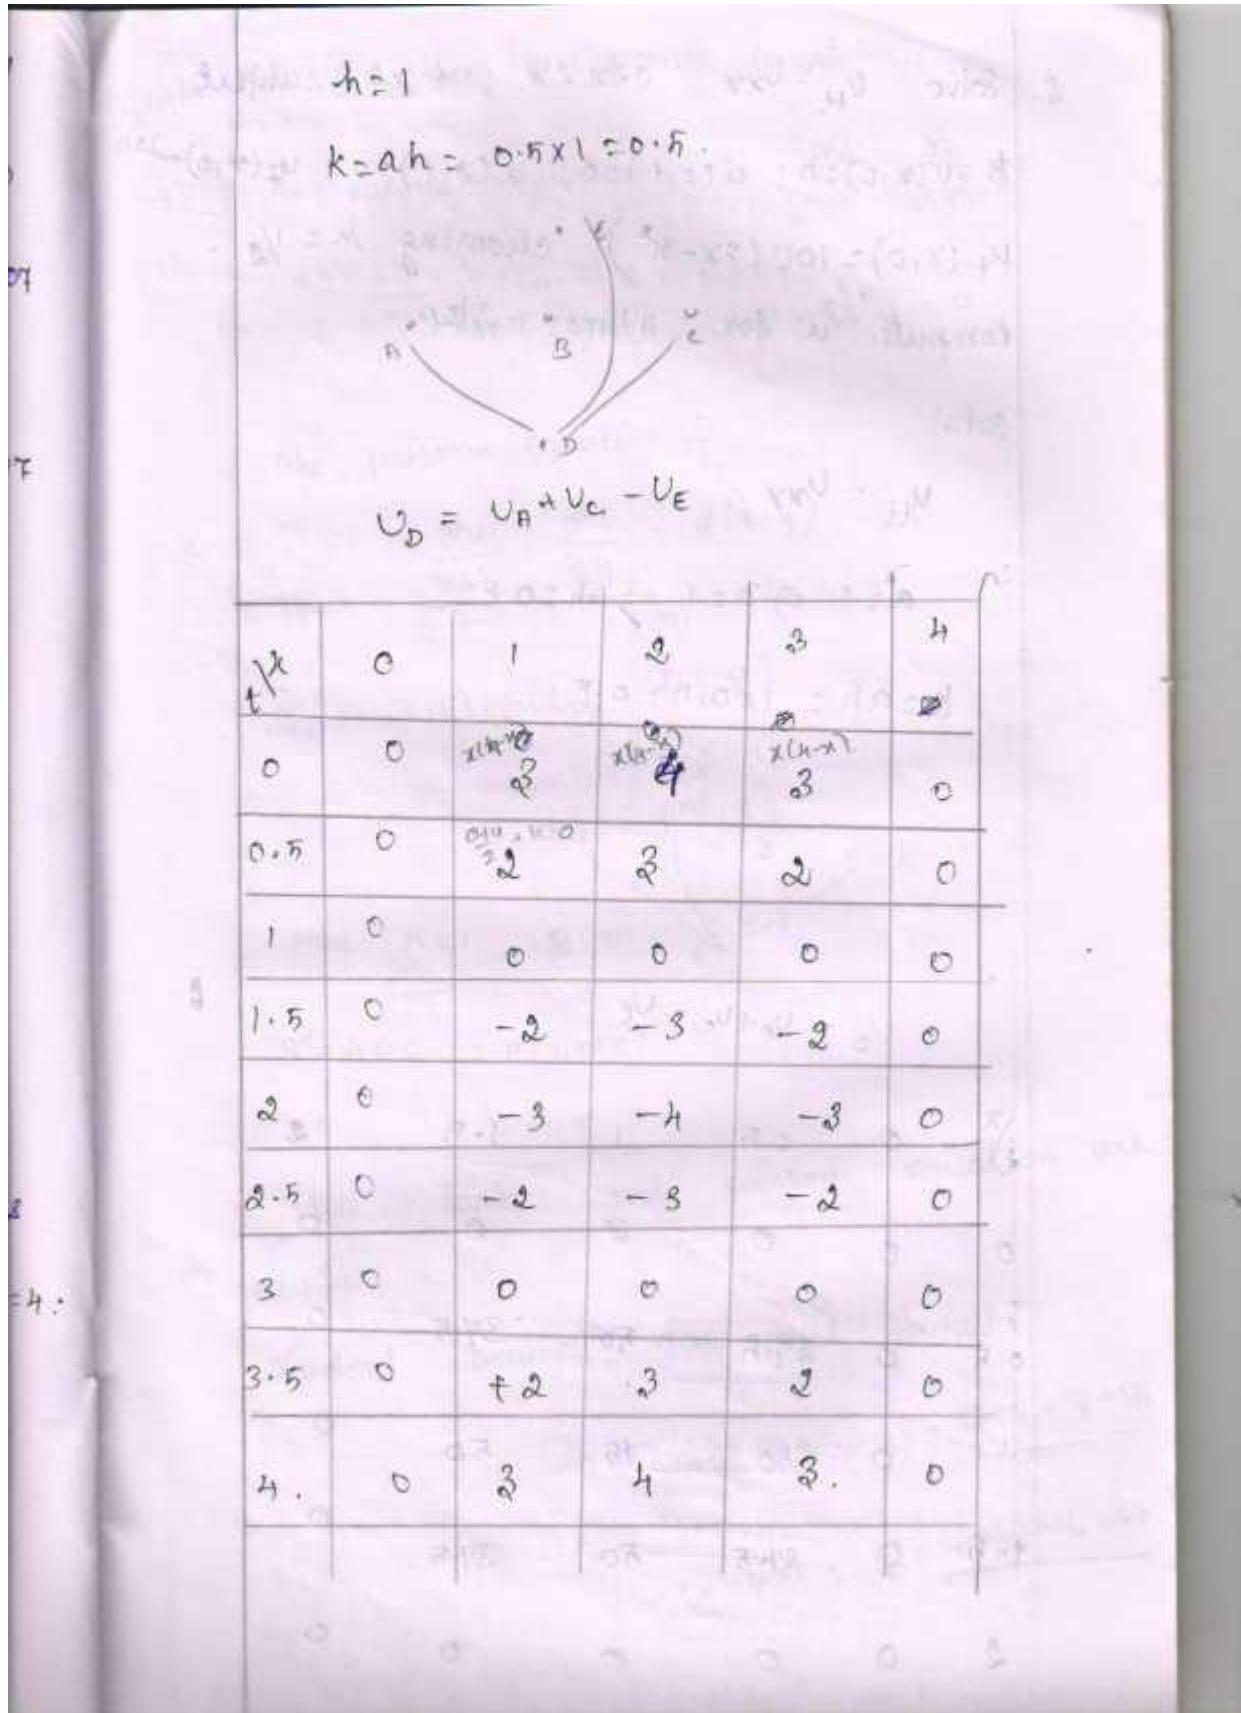 h=1
k=ah= 0.5×1=0.5.
E
A B C
D
U_D = U_A + U_C - U_E
t\x 0 1 2 3 4
x(4-x) x(4-x) x(4-x)
0 0 3 4 3 0
0.5 0 2 3 2 0
1 0 0 0 0 0
1.5 0 -2 -3 -2 0
2 0 -3 -4 -3 0
2.5 0 -2 -3 -2 0
3 0 0 0 0 0
3.5 0 +2 3 2 0
4. 0 3 4 3. 0
=4.